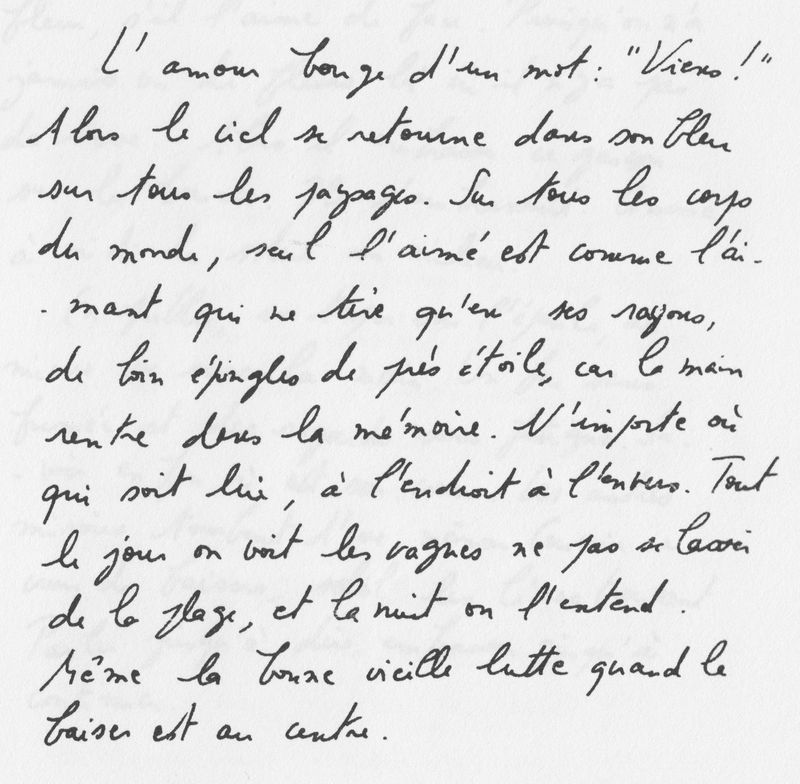 L'amour bouge d'un mot : "Viens !"
Alors le ciel se retourne dans son bleu
sur tous les paysages. Sur tous les corps
du monde, seul l'aimé est comme l'ai-
-mant qui ne tire qu'en ses rayons,
de loin épingles de près étoile, car la main
rentre dans la mémoire. N'importe où
qui soit lui, à l'endroit à l'envers. Tout
le jour on voit les vagues ne pas se lasser
de la plage, et la nuit on l'entend.
Même la bonne vieille lutte quand le
baiser est au centre.